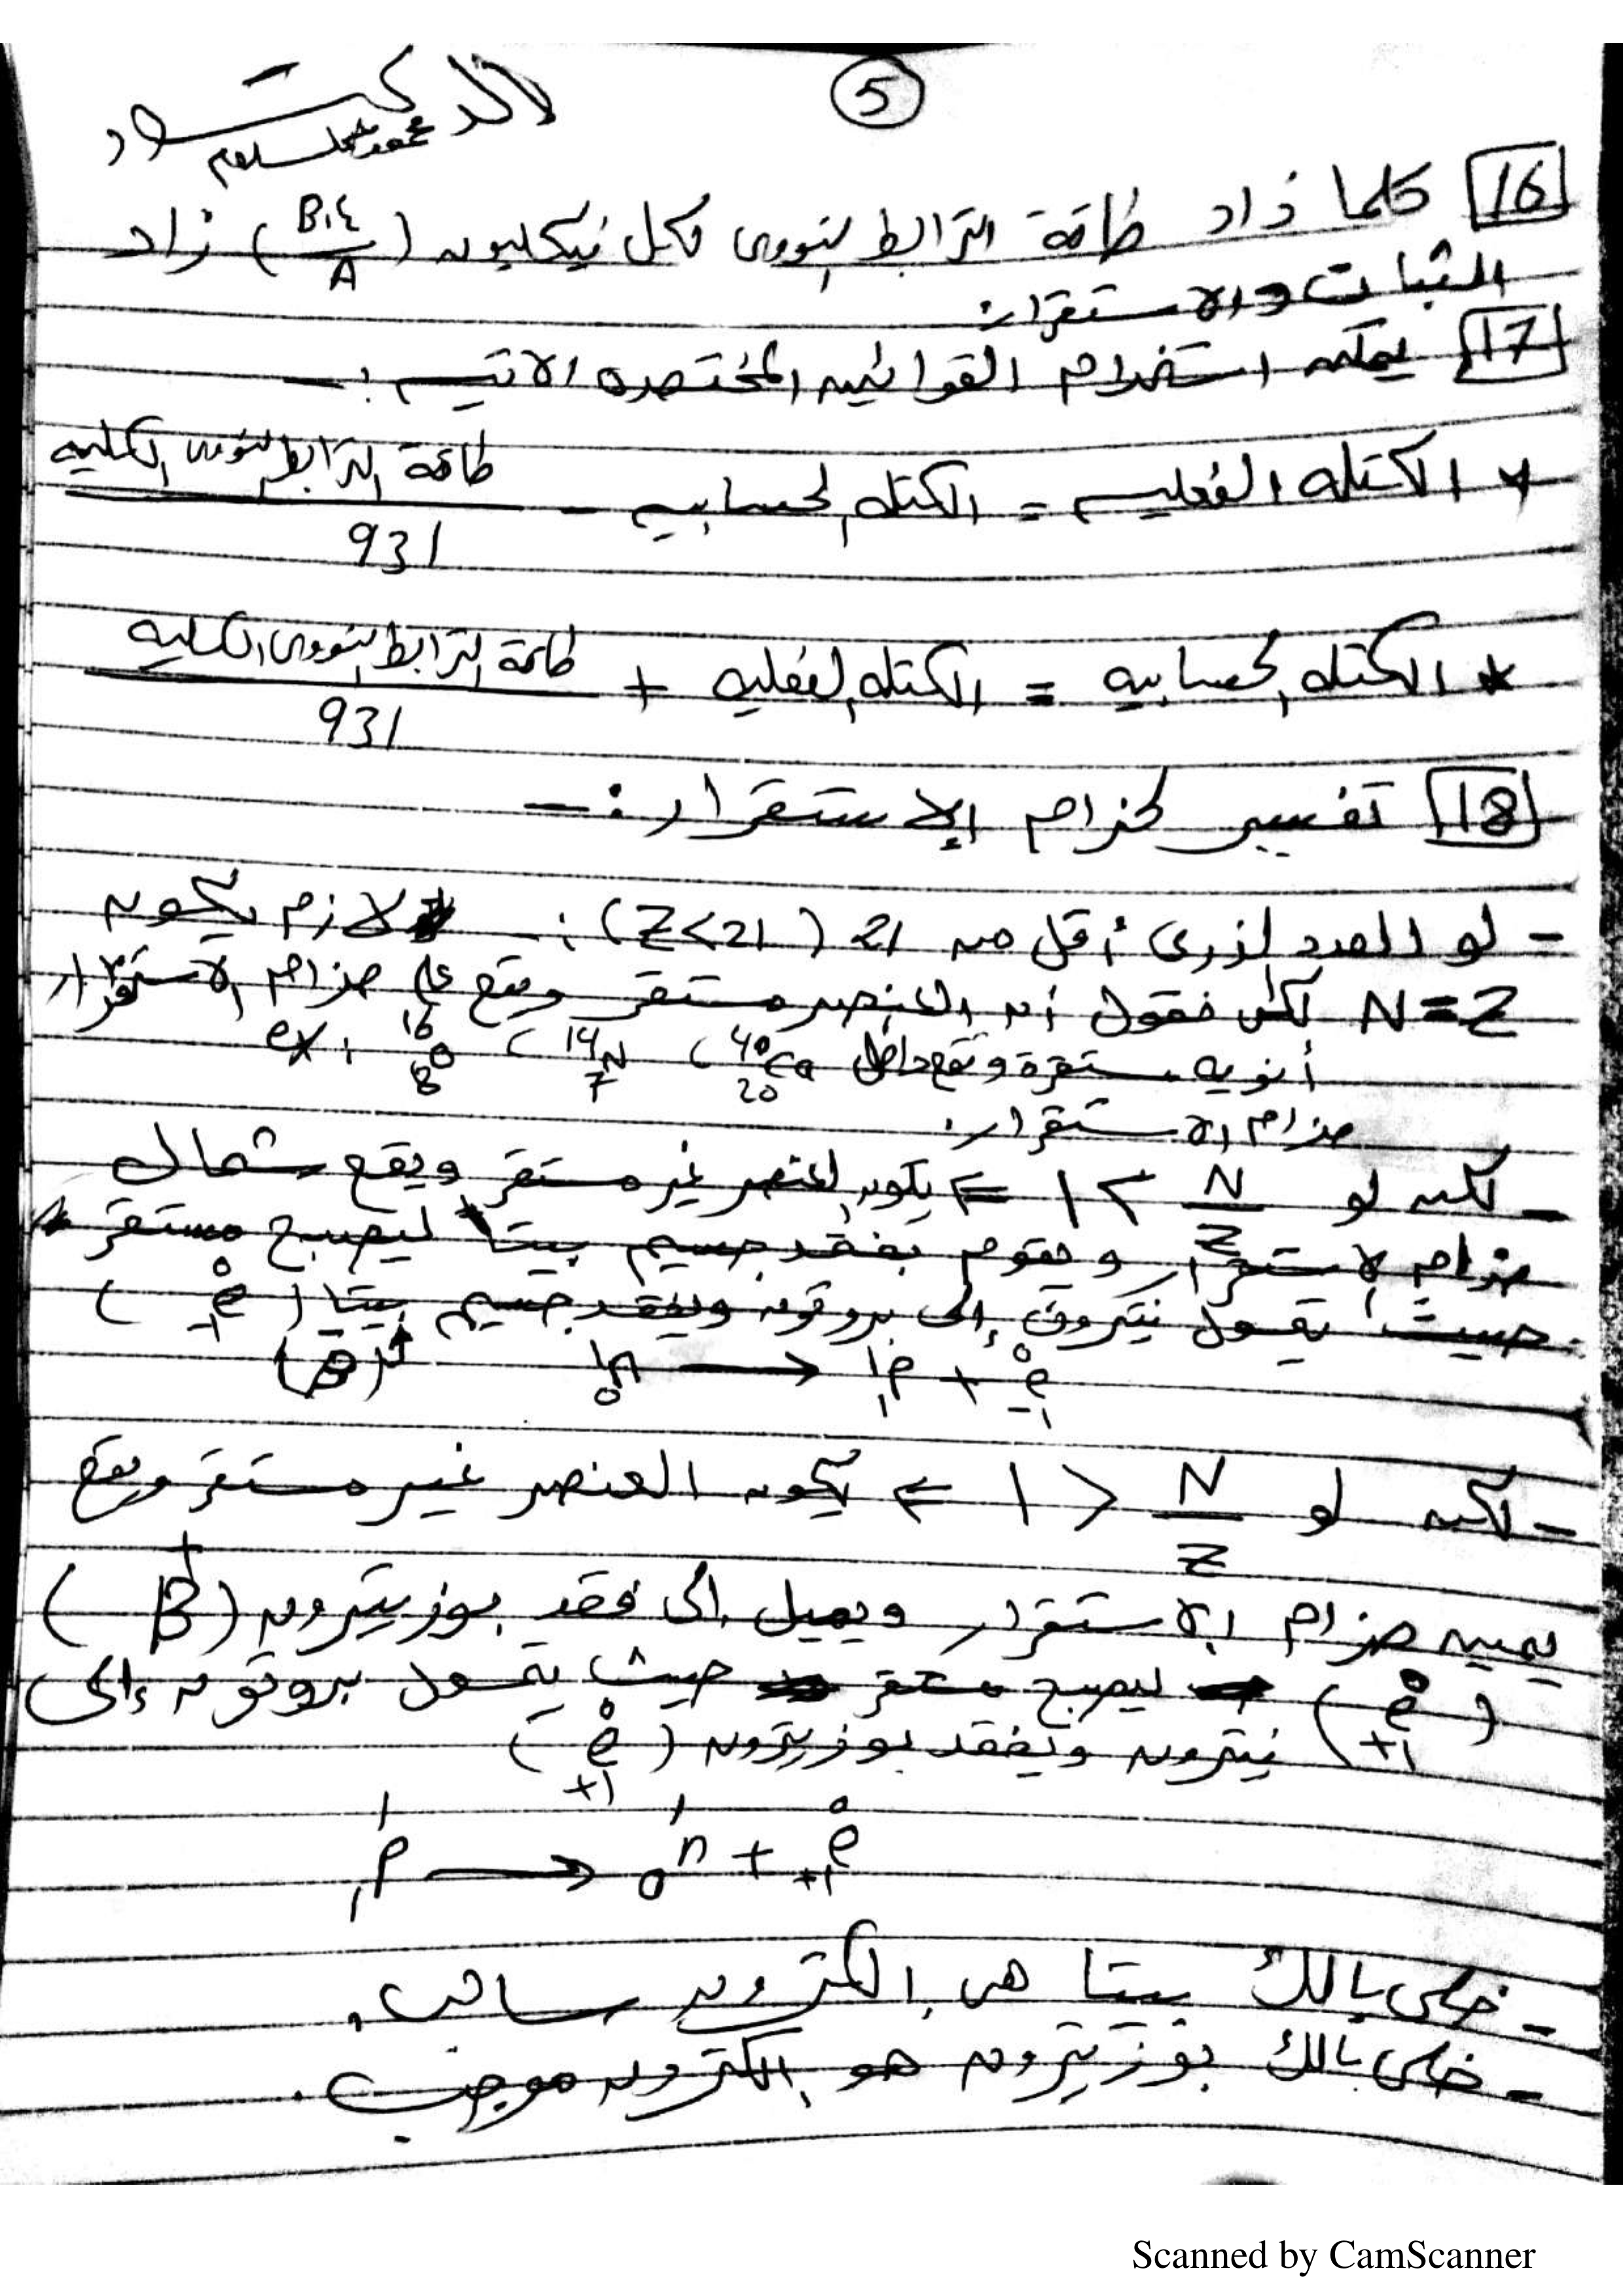 5
الدكتور
محمود سلوم
16 كلما زاد طاقة الترابط النووى لكل نيكليون (B.E/A) زاد
الثبات والاستقرار.
17 يمكن استخدام القوانين المختصره الاتيه :-
* الكتله الفعليه = الكتله الحسابيه - طاقة الترابط النووى الكليه / 931
* الكتله الحسابيه = الكتله الفعليه + طاقة الترابط النووى الكليه / 931
18 تفسير لحزام الاستقرار :-
- لو العدد الذرى أقل من 21 (Z<21) :- لازم يكون
N=Z لكى نقول أن العنصر مستقر ويقع على حزام الاستقرار
ex: 16 8 O , 14 7 N , 40 20 Ca أنويه مستقرة وتقع داخل
حزام الاستقرار.
- لكن لو N/Z > 1 ⇐ يكون العنصر غير مستقر ويقع شمال
حزام الاستقرار ويقوم بفقد جسيم بيتا ليصبح مستقر
حيث يتحول نيترون إلى بروتون ويفقد جسيم بيتا (0 -1 e)
(β-) 1 0 n → 1 1 p + 0 -1 e
- لكن لو N/Z < 1 ⇐ يكون العنصر غير مستقر ويقع
يمين حزام الاستقرار ويميل الى فقد بوزيترون (β+)
(0 +1 e) ليصبح مستقر حيث يتحول بروتون إلى
نيترون ويفقد بوزيترون (0 +1 e)
1 1 p → 1 0 n + 0 +1 e
- خلى بالك بيتا هى الكترون سالب.
- خلى بالك بوزيترون هو الكترون موجب.
Scanned by CamScanner